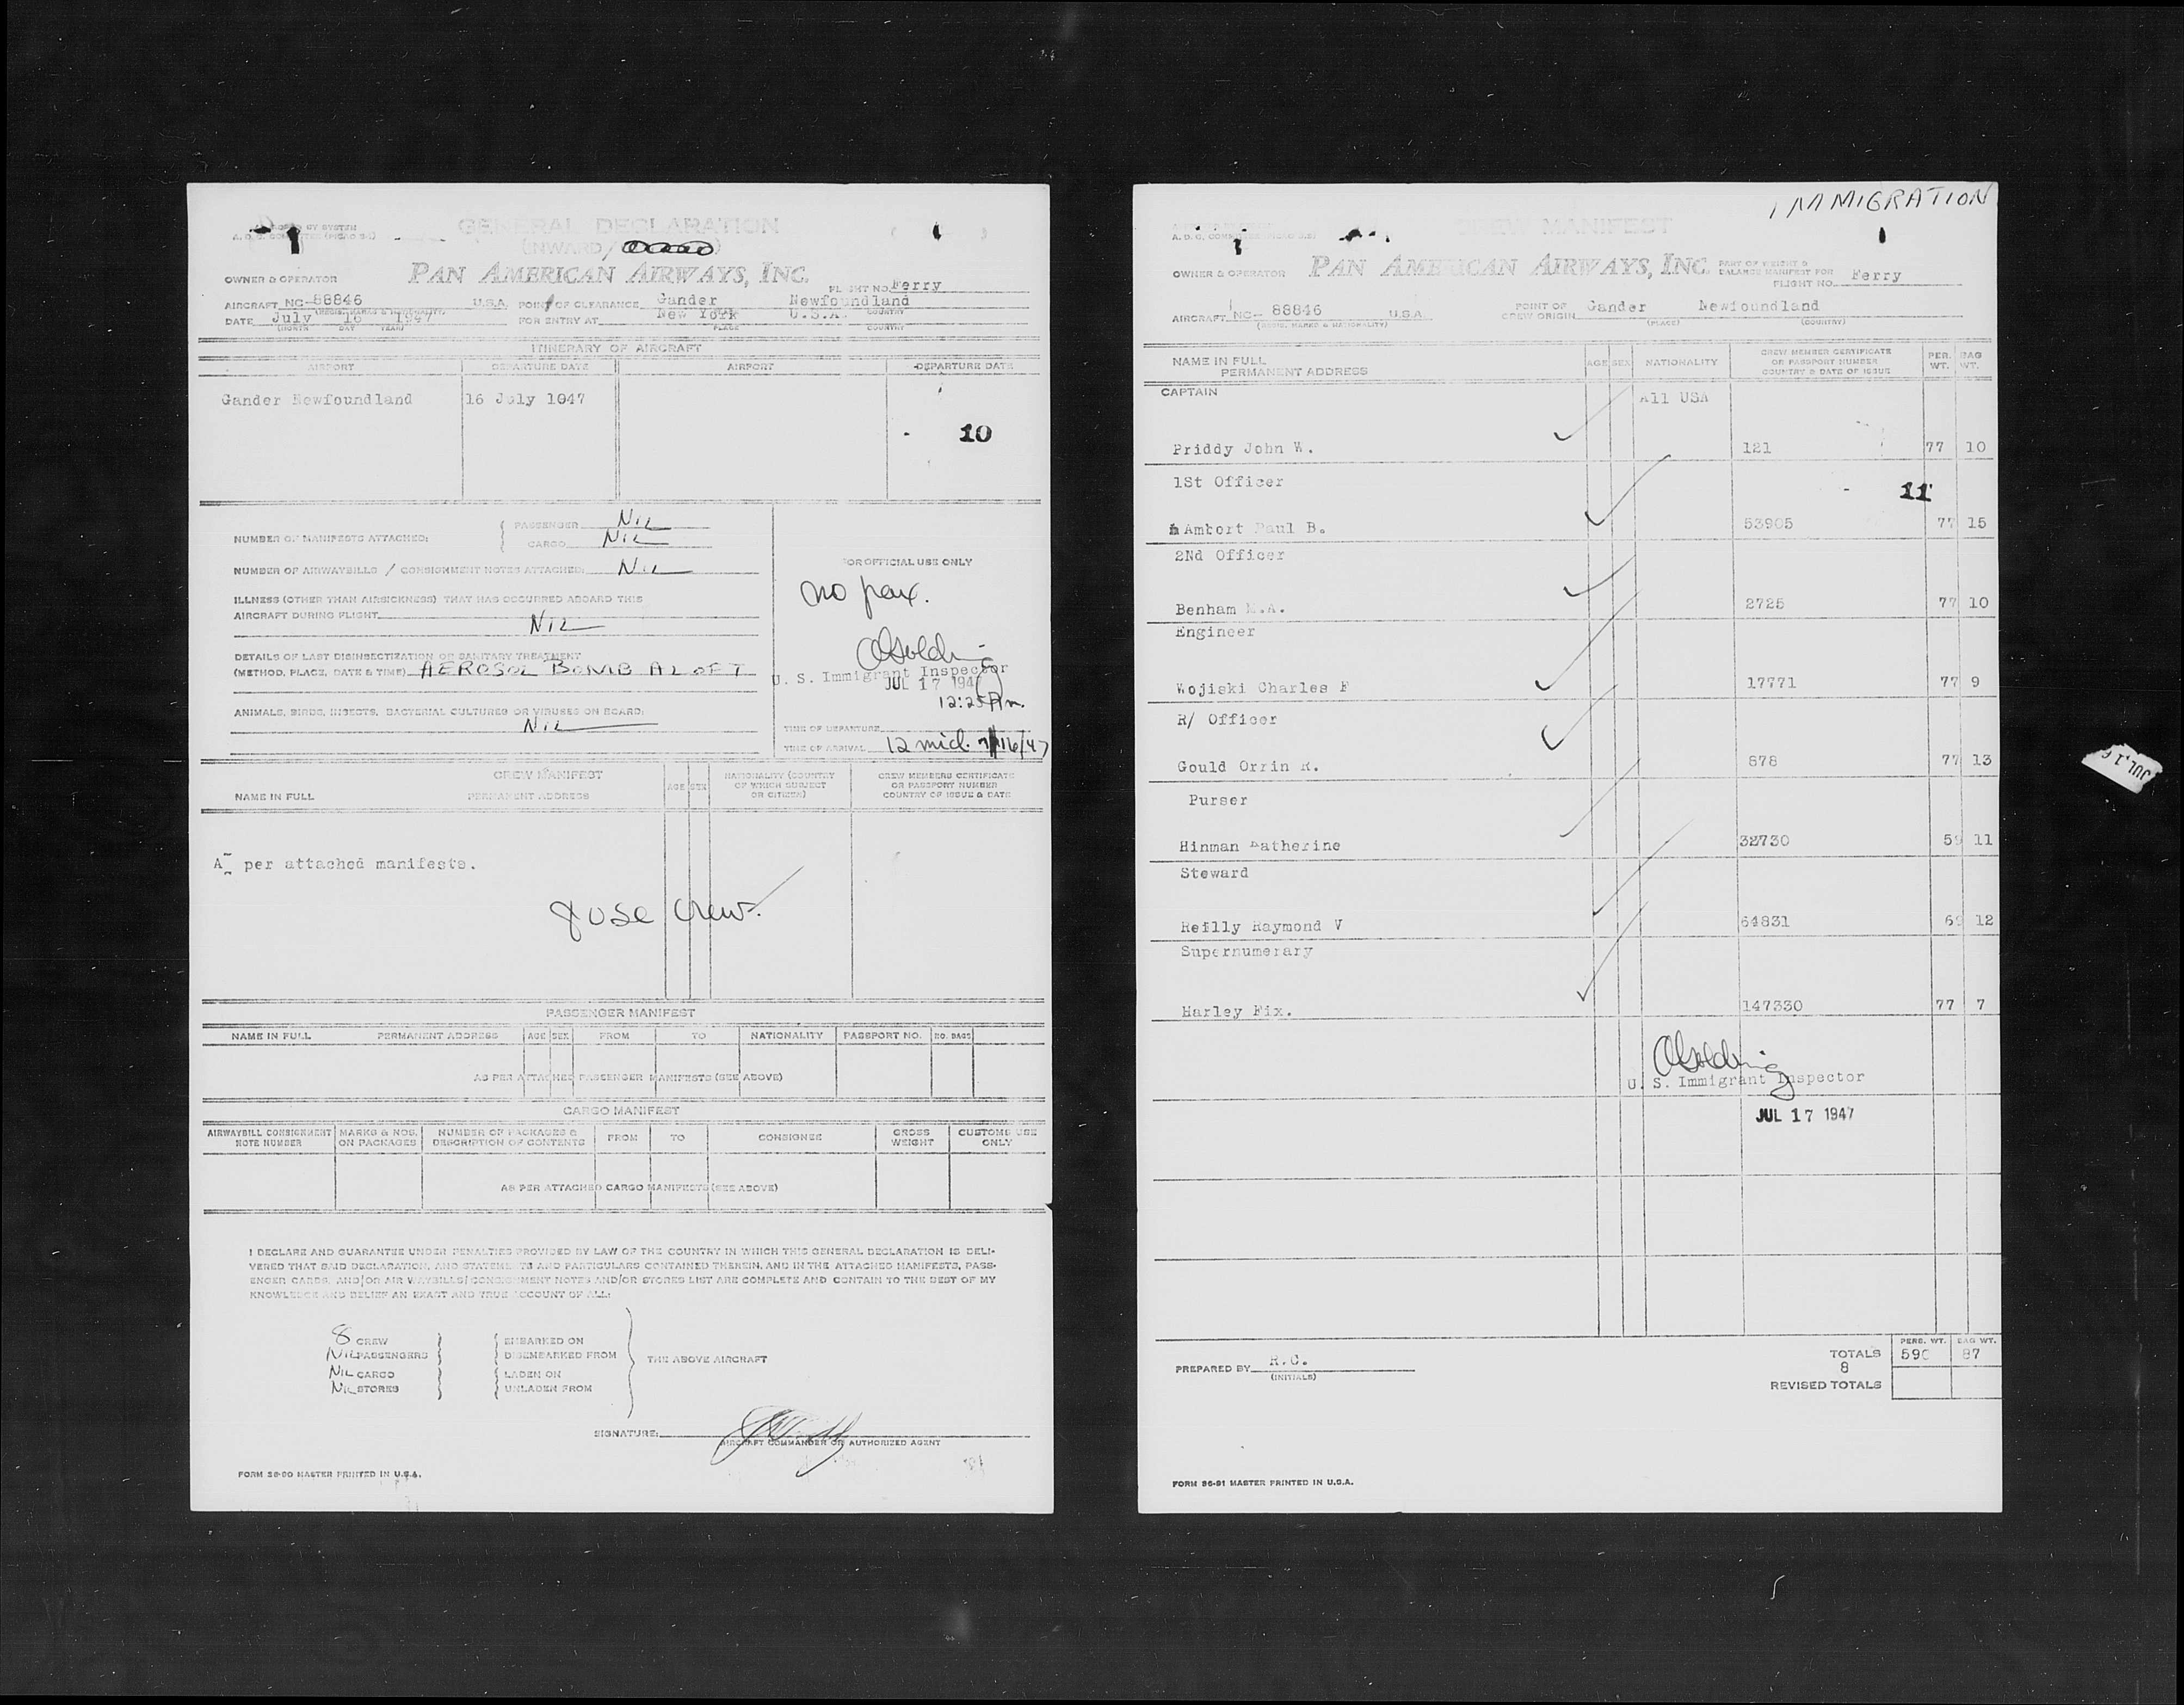 GENERAL DECLARATION
(INWARD/
OWNER & OPERATOR PAN AMERICAN AIRWAYS, INC. FLIGHT NO. Ferry
AIRCRAFT NC-88846 U.S.A. POINT OF CLEARANCE Gander Newfoundland
DATE July 16 1947 FOR ENTRY AT New York U.S.A.
(MONTH DAY YEAR) PLACE COUNTRY
ITINERARY OF AIRCRAFT
AIRPORT DEPARTURE DATE AIRPORT DEPARTURE DATE
Gander Newfoundland 16 July 1947
10
NUMBER OF MANIFESTS ATTACHED: PASSENGER Nil
CARGO Nil
NUMBER OF AIRWAYBILLS / CONSIGNMENT NOTES ATTACHED: Nil
ILLNESS (OTHER THAN AIRSICKNESS) THAT HAS OCCURRED ABOARD THIS
AIRCRAFT DURING FLIGHT Nil
DETAILS OF LAST DISINSECTIZATION OR SANITARY TREATMENT
(METHOD, PLACE, DATE & TIME) AEROSOL BOMB ALOFT
ANIMALS, BIRDS, INSECTS, BACTERIAL CULTURES OR VIRUSES ON BOARD:
Nil
FOR OFFICIAL USE ONLY
no pax.
U. S. Immigrant Inspector
JUL 17 1947
12:25 Am.
TIME OF DEPARTURE
TIME OF ARRIVAL 12 mid. 7/16/47
CREW MANIFEST
NAME IN FULL PERMANENT ADDRESS AGE SEX NATIONALITY (COUNTRY OF WHICH SUBJECT OR CITIZEN) CREW MEMBERS CERTIFICATE OR PASSPORT NUMBER COUNTRY OF ISSUE & DATE
per attached manifests.
8 USC Crew.
PASSENGER MANIFEST
NAME IN FULL PERMANENT ADDRESS AGE SEX FROM TO NATIONALITY PASSPORT NO. NO. BAGS
AS PER ATTACHED PASSENGER MANIFESTS (SEE ABOVE)
CARGO MANIFEST
AIRWAYBILL CONSIGNMENT NOTE NUMBER MARKS & NOS. ON PACKAGES NUMBER OF PACKAGES & DESCRIPTION OF CONTENTS FROM TO CONSIGNEE GROSS WEIGHT CUSTOMS USE ONLY
AS PER ATTACHED CARGO MANIFESTS (SEE ABOVE)
I DECLARE AND GUARANTEE UNDER PENALTIES PROVIDED BY LAW OF THE COUNTRY IN WHICH THIS GENERAL DECLARATION IS DELI-
VERED THAT SAID DECLARATION, AND STATEMENTS AND PARTICULARS CONTAINED THEREIN, AND IN THE ATTACHED MANIFESTS, PASS-
ENGER CARDS, AND/OR AIR WAYBILLS/CONSIGNMENT NOTES AND/OR STORES LIST ARE COMPLETE AND CONTAIN TO THE BEST OF MY
KNOWLEDGE AND BELIEF AN EXACT AND TRUE ACCOUNT OF ALL:
8 CREW EMBARKED ON
Nil PASSENGERS DISEMBARKED FROM THE ABOVE AIRCRAFT
Nil CARGO LADEN ON
Nil STORES UNLADEN FROM
SIGNATURE:
AIRCRAFT COMMANDER OR AUTHORIZED AGENT
FORM 36-90 MASTER PRINTED IN U.S.A.
IMMIGRATION
CREW MANIFEST
OWNER & OPERATOR PAN AMERICAN AIRWAYS, INC. PART OF WEIGHT & BALANCE MANIFEST FOR FLIGHT NO. Ferry
AIRCRAFT NC- 88846 U.S.A. POINT OF CREW ORIGIN Gander Newfoundland
(REGIS. MARKS & NATIONALITY) (PLACE) (COUNTRY)
NAME IN FULL PERMANENT ADDRESS AGE SEX NATIONALITY CREW MEMBER CERTIFICATE OR PASSPORT NUMBER COUNTRY & DATE OF ISSUE PER. WT. BAG WT.
CAPTAIN All USA
Priddy John W. 121 77 10
1St Officer
11
Ambort Paul B. 53905 77 15
2Nd Officer
Benham M.A. 2725 77 10
Engineer
Wojiski Charles F 17771 77 9
R/ Officer
Gould Orrin R. 878 77 13
Purser
Hinman Katherine 32730 59 11
Steward
Reilly Raymond V 64831 69 12
Supernumerary
Harley Fix. 147330 77 7
U. S. Immigrant Inspector
JUL 17 1947
PERS. WT. BAG WT.
PREPARED BY R.C. TOTALS 590 87
(INITIALS) 8
REVISED TOTALS
FORM 36-91 MASTER PRINTED IN U.S.A.